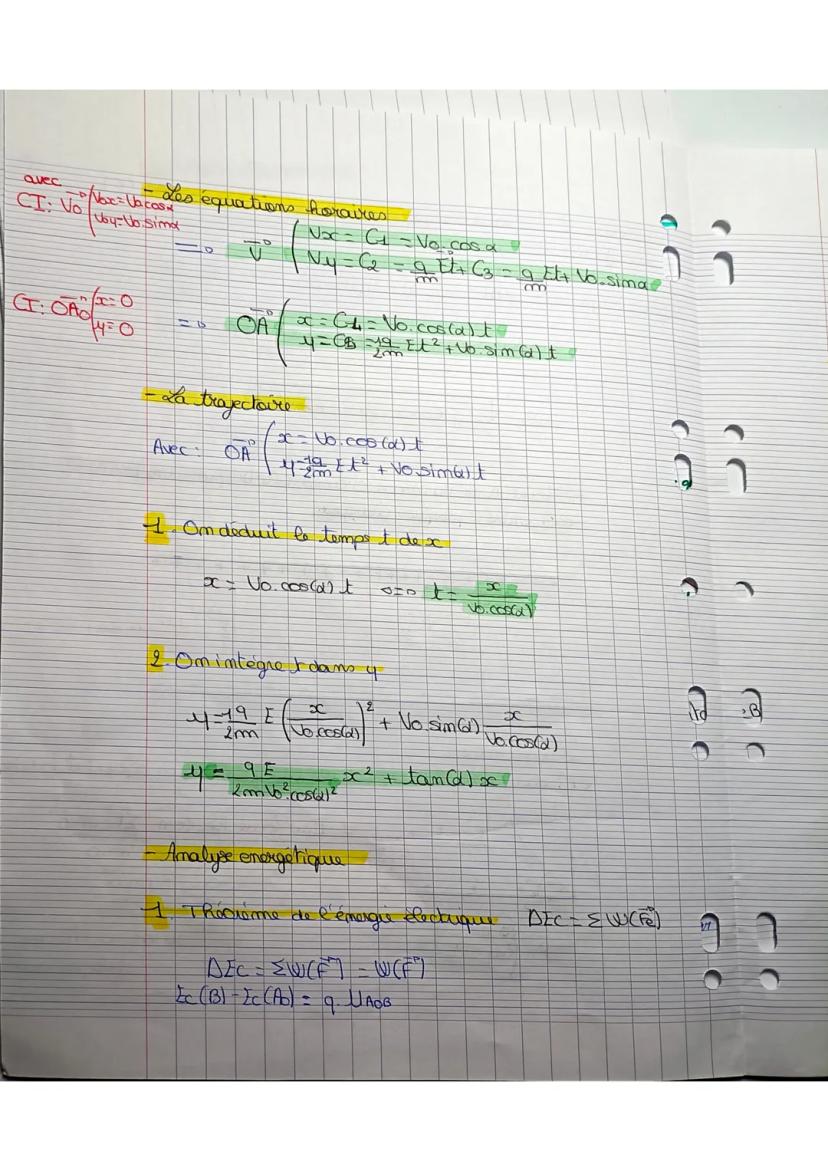 avec
CI: V₀ ( V₀x = V₀.cosα
V₀y = V₀.sinα
- Les équations horaires
=> V ( Vx = C1 = V₀.cosα
Vy = C2 - q/m Et + C3 - q/m Et + V₀.sinα
CI: OA₀ ( x = 0
y = 0
=> OA ( x = C4 = V₀.cos(α) t
y = C5 = -1q/2m Et² + V₀.sin(α) t
- La trajectoire
Avec : OA ( x = V₀.cos(α) t
y = -1q/2m Et² + V₀.sin(α) t
1. On déduit le temps t de x
x = V₀.cos(α) t <=> t = x/V₀.cos(α)
2. On intègre t dans y
y = -1q/2m E (x/V₀.cos(α))² + V₀.sin(α) x/V₀.cos(α)
y = - qE/2mV₀².cos(α)² x² + tan(α) x
- Analyse énergétique
1 Théorème de l'énergie électrique ΔEc = ΣW(Fe)
ΔEc = ΣW(F) = W(F)
Ec(B) - Ec(A₀) = q. UA₀B